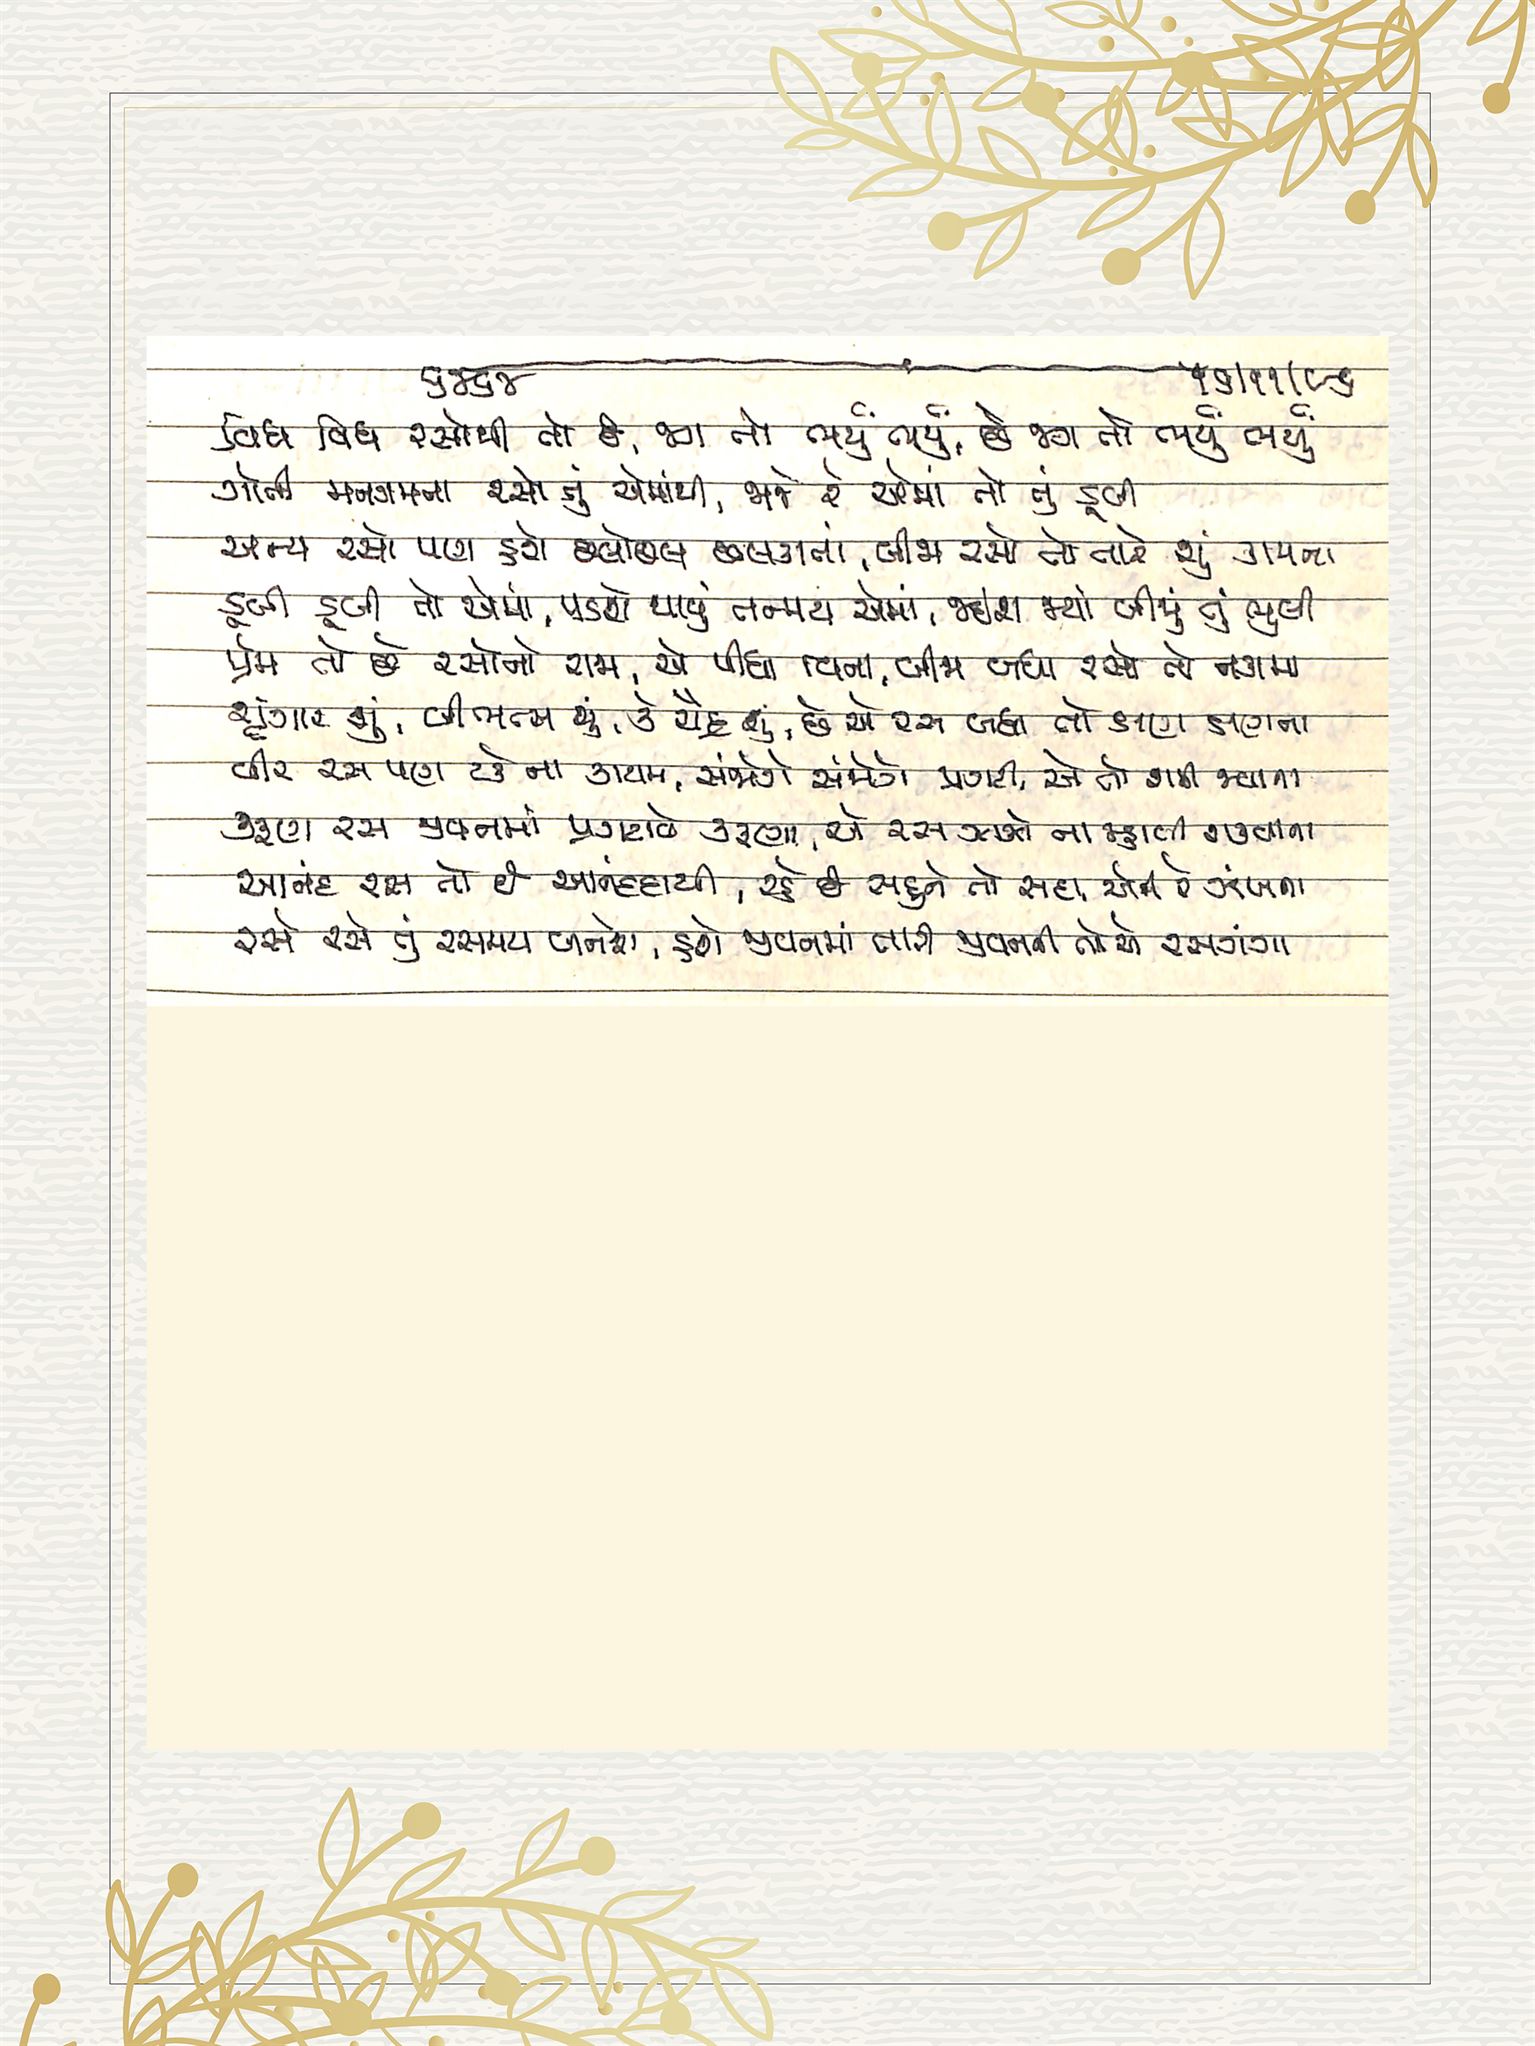 ૬૪૬૪ ૧૭/૧૧/૮૬
વિધ વિધ રસોથી તો છે, જગ તો ભર્યું ભર્યું, છે જગ તો ભર્યું ભર્યું
ગોતી મનગમતા રસો તું એમાંથી, જાજે રે એમાં તો તું ડૂબી
અન્ય રસો પણ હશે છલોછલ છલકાતાં, બીજા રસો તો તારે શું કામના
ડૂબી ડૂબી તો એમાં, પડશે થાવું તન્મય એમાં, જાશે બીજું તું ભુલી
પ્રેમ તો છે રસોનો રાજા, એ પીધા વિના, બીજા બધા રસો તો નકામા
શૃંગાર શું, બીભત્સ શું, કે રૌદ્ર શું, છે એ રસ બધા તો ક્ષણ ક્ષણના
વીર રસ પણ ટકે ના કાયમ, સંજોગે સંજોગે પ્રગટી, એ તો શમી જાવાના
કરૂણ રસ જીવનમાં પ્રગટાવે કરૂણા, એ રસ ના શકવાના
આનંદ રસ તો છે આનંદદાયી, રહે છે સહુને તો સદા, એની રે ઝંખના
રસે રસે તું રસમય બનશે, હશે જીવનમાં તારી જીવનની તો એ રસગંગા